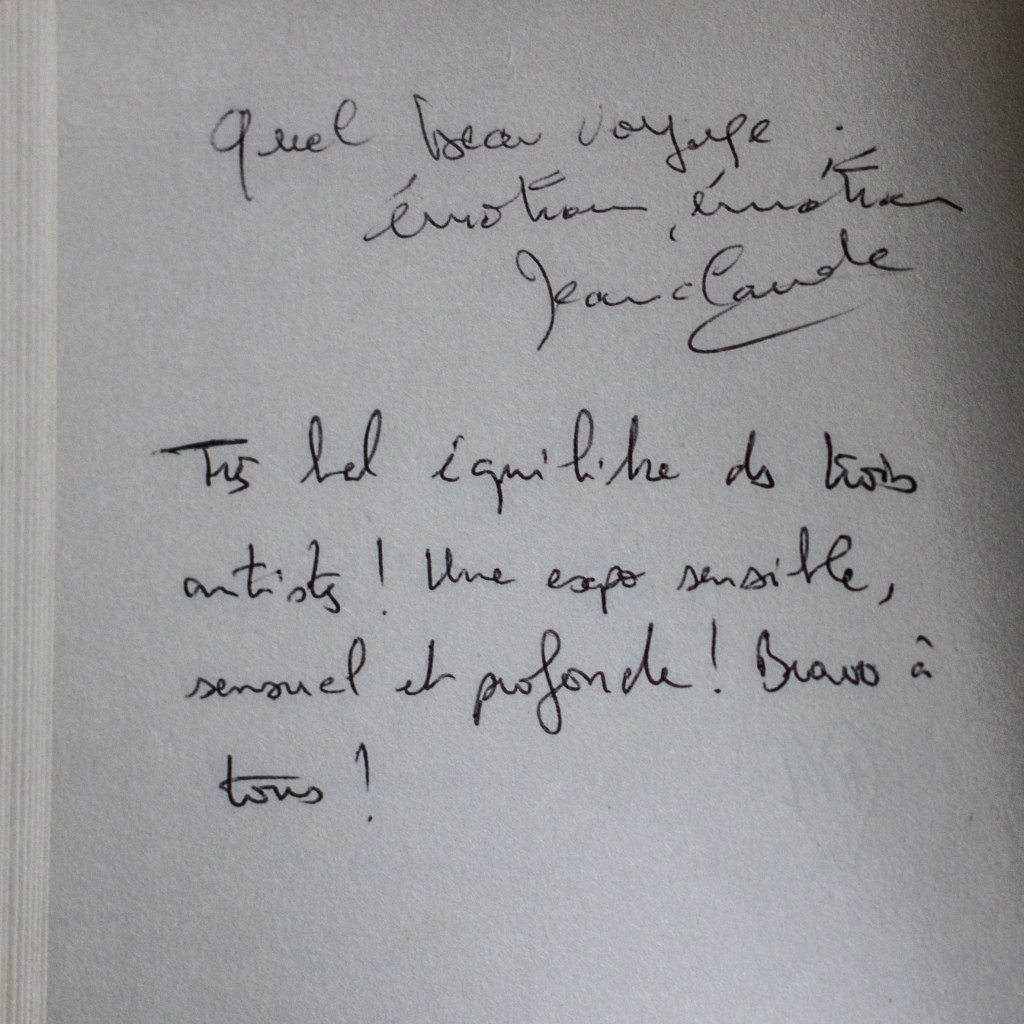 Quel beau voyage.
émotion, émotion
Jean claude
Très bel équilibre des trois
artistes ! Une expo sensible,
sensuel et profonde ! Bravo à
tous !